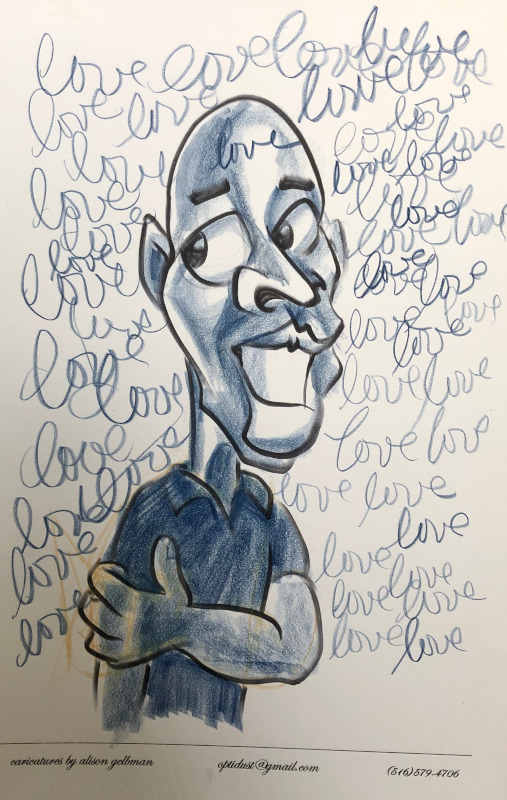 love love love love
love love love love
love love love love
love love love love
love love love
love love love love
love love love
love love love
love love love
love love love
love love love
love love love
love love love
love love
love love love
love love love
love love love
caricatures by alison gelbman optidust@gmail.com (516)579-4706